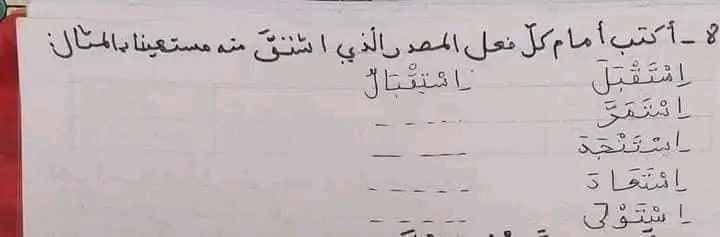 8 - أكتب أمام كلّ فعل المصدر الّذي اشتقّ منه مستعينا بالمثال:
اِسْتَقْبَلَ اِسْتِقْبَالٌ
اِسْتَمَرَّ -----
اِسْتَنْجَدَ ----
اِسْتَعَادَ -----
اِسْتَوْلَى -----